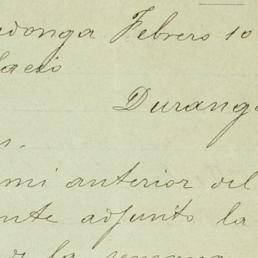 donga Febrero 10
lacio
Durang
n.
mi anterior del
nte adjunto la
de la semana